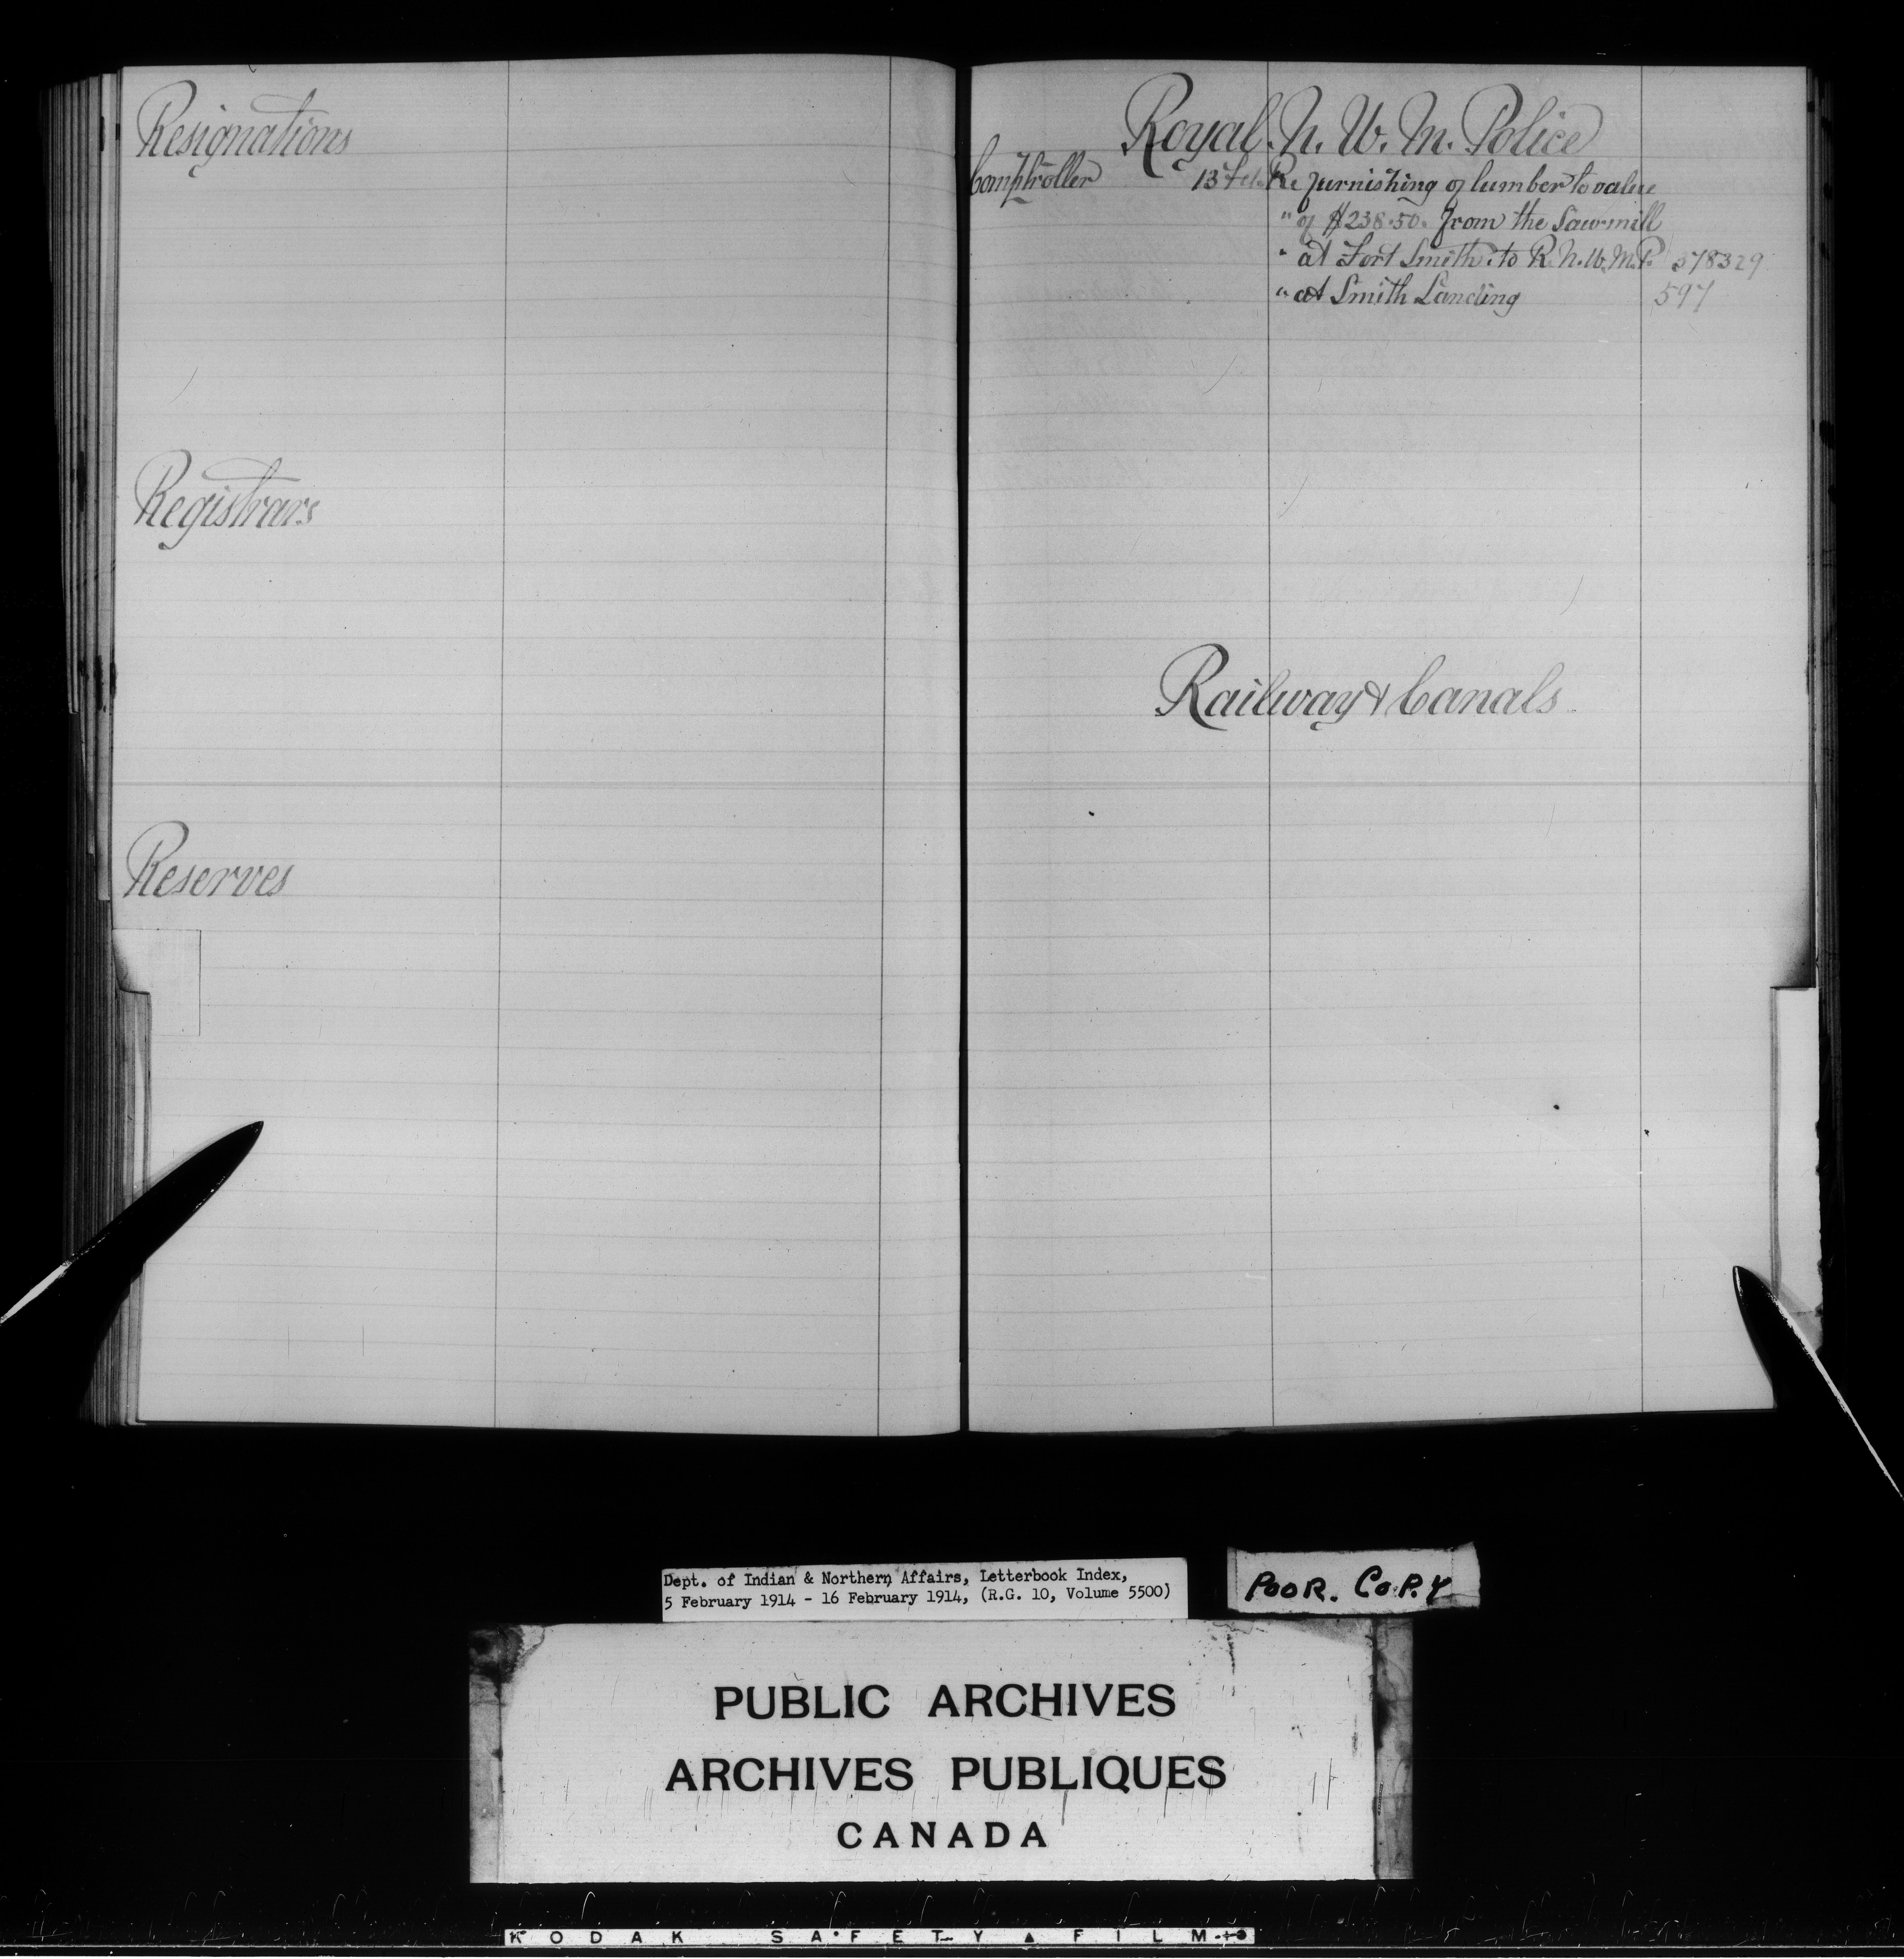 Resignations
Registrars
Reserves
Royal. N. W. M. Police
Comptroller 13 Feb. Re furnishing of lumber to value
" of $238.50. from the Sawmill
" at Fort Smith. to R. N. W. M. P. 578329
" at Smith Landing 597
Railway & Canals
Dept. of Indian & Northern Affairs, Letterbook Index,
5 February 1914 - 16 February 1914, (R.G. 10, Volume 5500)
POOR. COPY
PUBLIC ARCHIVES
ARCHIVES PUBLIQUES
CANADA
KODAK SAFETY ▲ FILM